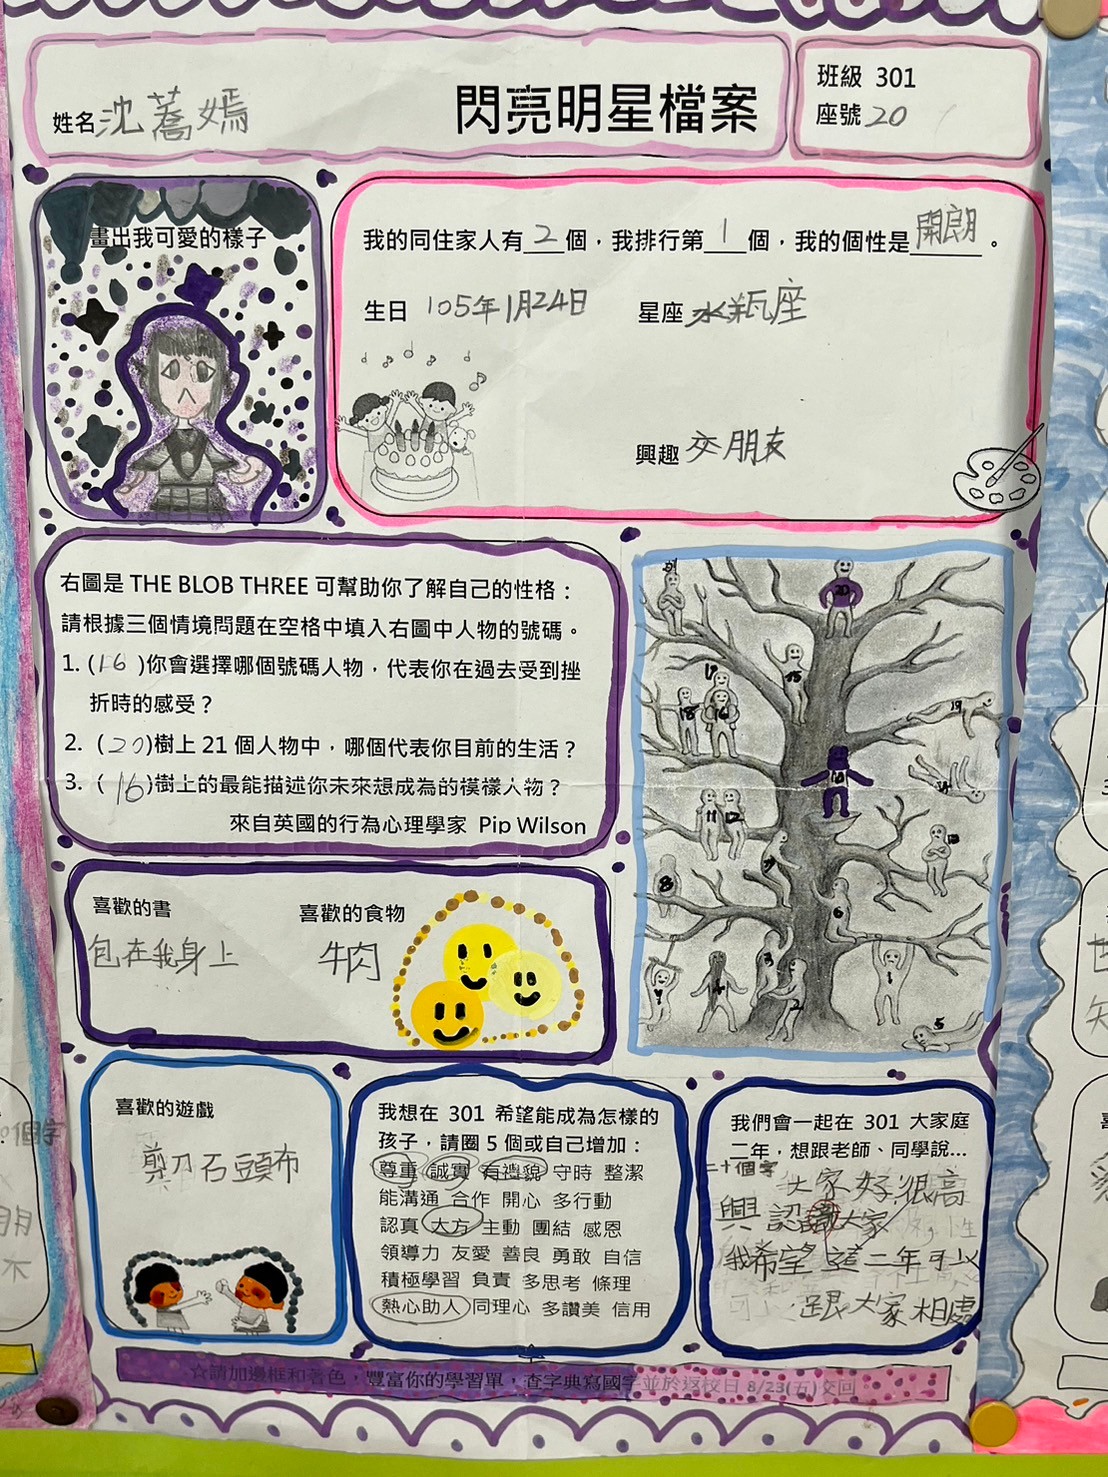 姓名 沈蕎嫣
閃亮明星檔案
班級 301
座號 20
畫出我可愛的樣子
我的同住家人有 2 個，我排行第 1 個，我的個性是 開朗 。
生日 105年1月24日
星座 水瓶座
興趣 交朋友
右圖是 THE BLOB THREE 可幫助你了解自己的性格：
請根據三個情境問題在空格中填入右圖中人物的號碼。
1. (16)你會選擇哪個號碼人物，代表你在過去受到挫
折時的感受？
2. (20)樹上 21 個人物中，哪個代表你目前的生活？
3. (16)樹上的最能描述你未來想成為的模樣人物？
來自英國的行為心理學家 Pip Wilson
20
15
17
18
16
19
11
12
8
6
1
5
喜歡的書
包在我身上
喜歡的食物
牛肉
喜歡的遊戲
剪刀石頭布
我想在 301 希望能成為怎樣的
孩子，請圈 5 個或自己增加：
尊重 誠實 有禮貌 守時 整潔
能溝通 合作 開心 多行動
認真 大方 主動 團結 感恩
領導力 友愛 善良 勇敢 自信
積極學習 負責 多思考 條理
熱心助人 同理心 多讚美 信用
我們會一起在 301 大家庭
二年，想跟老師、同學說...
二十個字
大家好很高
興認識大家，
我希望這二年可以
跟大家相處
☆請加邊框和著色，豐富你的學習單，查字典寫國字並於返校日 8/23(五)交回